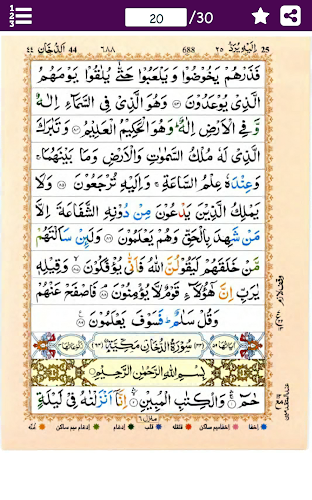 1
2
3
20 /30
٤٤ الدخان 44 ٦٨٨ 688 اليه يرد ٢٥ 25
فَذَرْهُمْ يَخُوضُوْا وَيَلْعَبُوْا حَتّٰى يُلٰقُوْا يَوْمَهُمُ
الَّذِيْ يُوْعَدُوْنَ ۝٨٣ وَهُوَ الَّذِيْ فِي السَّمَآءِ اِلٰهٌ
وَّفِي الْاَرْضِ اِلٰهٌ ؕ وَهُوَ الْحَكِيْمُ الْعَلِيْمُ ۝٨٤ وَتَبٰرَكَ
الَّذِيْ لَهٗ مُلْكُ السَّمٰوٰتِ وَالْاَرْضِ وَمَا بَيْنَهُمَا ۚ
وَعِنْدَهٗ عِلْمُ السَّاعَةِ ۚ وَاِلَيْهِ تُرْجَعُوْنَ ۝٨٥ وَلَا
يَمْلِكُ الَّذِيْنَ يَدْعُوْنَ مِنْ دُوْنِهِ الشَّفَاعَةَ اِلَّا
مَنْ شَهِدَ بِالْحَقِّ وَهُمْ يَعْلَمُوْنَ ۝٨٦ وَلَئِنْ سَاَلْتَهُمْ
مَّنْ خَلَقَهُمْ لَيَقُوْلُنَّ اللّٰهُ فَاَنّٰى يُؤْفَكُوْنَ ۝٨٧ وَقِيْلِهٖ
يٰرَبِّ اِنَّ هٰٓؤُلَآءِ قَوْمٌ لَّا يُؤْمِنُوْنَ ۝٨٨ فَاصْفَحْ عَنْهُمْ
وَقُلْ سَلٰمٌ ؕ فَسَوْفَ يَعْلَمُوْنَ ۝٨٩
سُوْرَةُ الدُّخَانِ مَكِّيَّةٌ
بِسْمِ اللّٰهِ الرَّحْمٰنِ الرَّحِيْمِ
حٰمٓ ۝١ وَالْكِتٰبِ الْمُبِيْنِ ۝٢ اِنَّآ اَنْزَلْنٰهُ فِيْ لَيْلَةٍ
منزل ٦
اخفا اخفا میم ساکن قلقله قلب ادغام ادغام میم ساکن غنّه